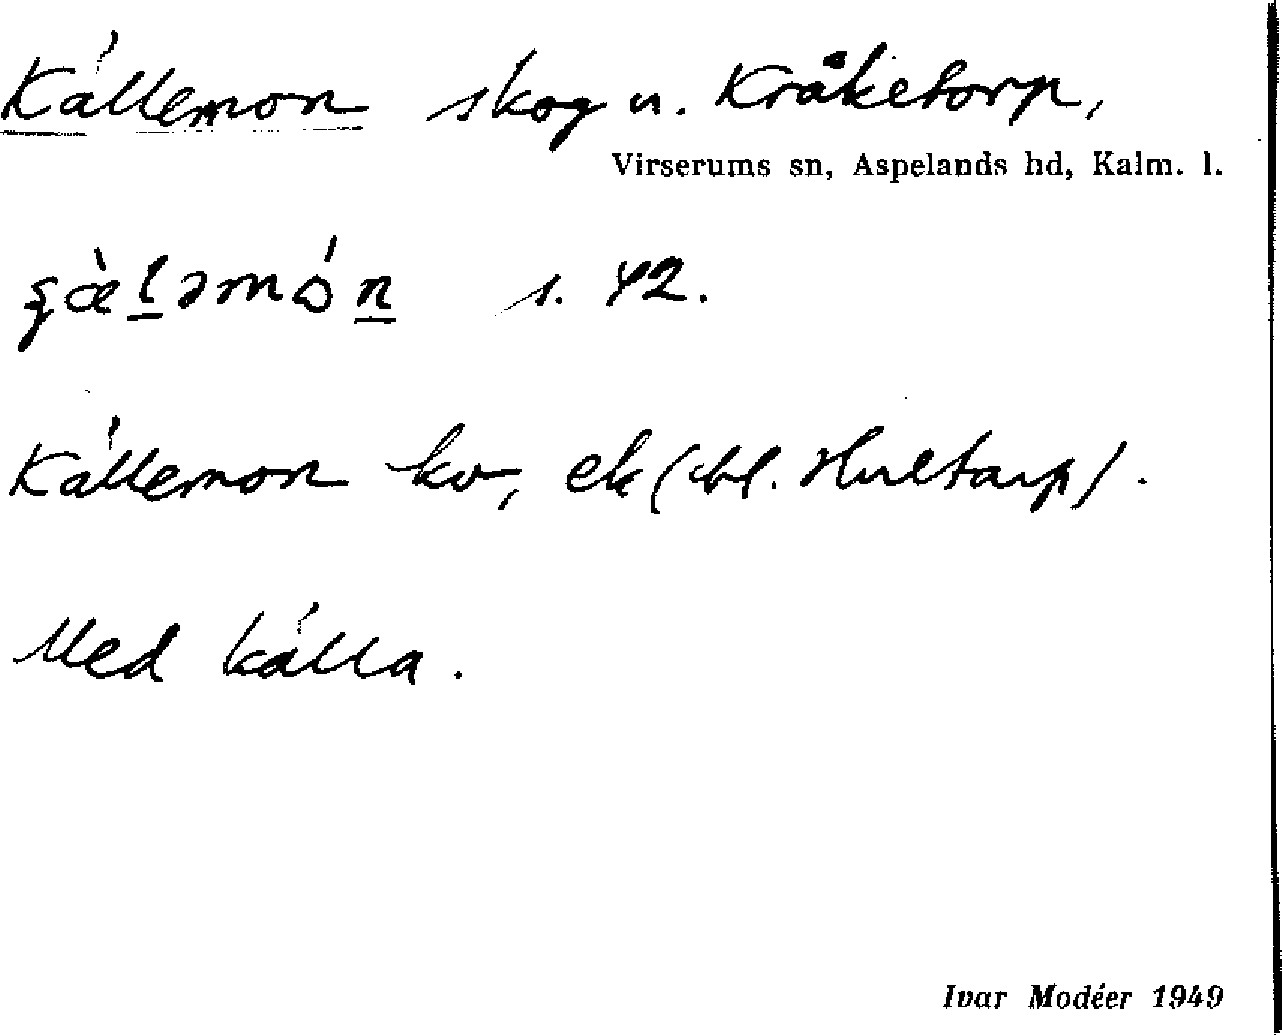 Källemon skog u. Kråketorp,
Virserums sn, Aspelands hd, Kalm. l.
s. 42.
Källemon kv, ek (bl. Hultarp).
Med källa.
Ivar Modéer 1949